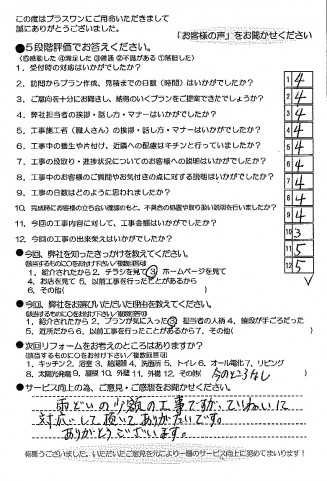 この度はプラスワンにご用命いただきまして
誠にありがとうございました。
「お客様の声」をお聞かせください
●5段階評価でお答えください。
(⑤感動した ④満足した ③普通 ②不満がある ①落胆した)
1. 受付時の対応はいかがでしたか? 1 4
2. 訪問からプラン作成、見積までの日数(時間)はいかがでしたか? 2 4
3. ご意向を十分にお聞きし、納得のいくプランをご提案できたでしょうか? 3 4
4. 弊社担当者の挨拶・話し方・マナーはいかがでしたか? 4 4
5. 工事施工者(職人さん)の挨拶・話し方・マナーはいかがでしたか? 5 4
6. 工事中の養生や片付け、近隣への配慮はキチンと行っていましたか? 6 4
7. 工事の段取り・進捗状況についてのお客様への説明はいかがでしたか? 7 4
8. 工事中のお客様のご質問やお気付きの点に対する説明はいかがでしたか? 8 4
9. 工事の日数はどのように思われましたか? 9 4
10. 完成時にお客様の立ち会い確認のもと、不具合の処置や取り扱い説明を行いましたか? 10 3
11. 今回の工事内容に対して、工事金額はいかがでしたか? 11 5
12. 今回の工事の出来栄えはいかがでしたか? 12 5
●今回、弊社を知ったきっかけを教えてください。
(該当するものに○をお付け下さい/複数回答可)
1. 紹介されたから 2. チラシを見て ③ ホームページを見て
4. お店を見て 5. 以前工事を行ったことがあるから
6. その他( )
●今回、弊社をお選びいただいた理由を教えてください。
(該当するものに○をお付け下さい/複数回答可)
1. 紹介されたから 2. プランが気に入った ③ 担当者の人柄 4. 値段が手ごろだった
5. 近所だから 6. 以前工事を行ったことがあるから 7. その他( )
●次回リフォームをお考えのところはありますか?
(該当するものに○をお付け下さい/複数回答可)
1. キッチン 2. 浴室 3. 給湯器 4. 洗面所 5. トイレ 6. オール電化 7. リビング
8. 太陽光発電 9. 屋根 10. 外壁 11. 外構 12. その他( 今のところなし )
●サービス向上の為、ご意見・ご感想をお聞かせください。
雨どいの少額の工事ですが、ていねいに
対応して頂いてありがたいです。
ありがとうございます。
有難うございました。いただいたご意見を元により一層のサービス向上に努めてまいります!